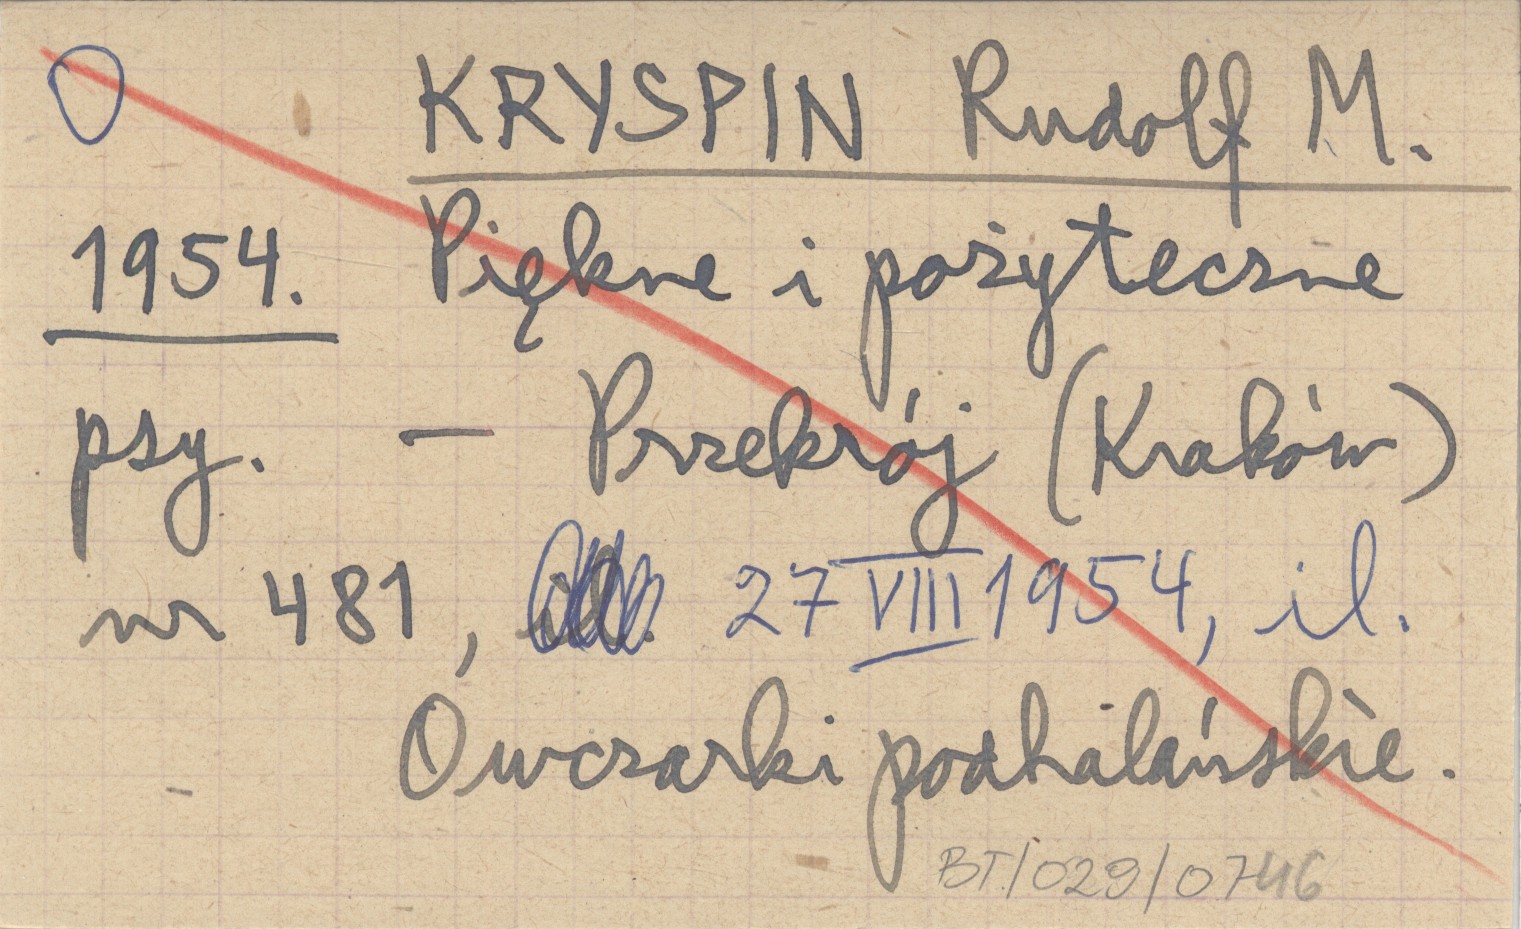 KRYSPIN Rudolf M.
1954. Piękne i pożyteczne
psy. — Przekrój (Kraków)
nr 481, 27 VIII 1954, il.
Owczarki podhalańskie.
BT/029/0746